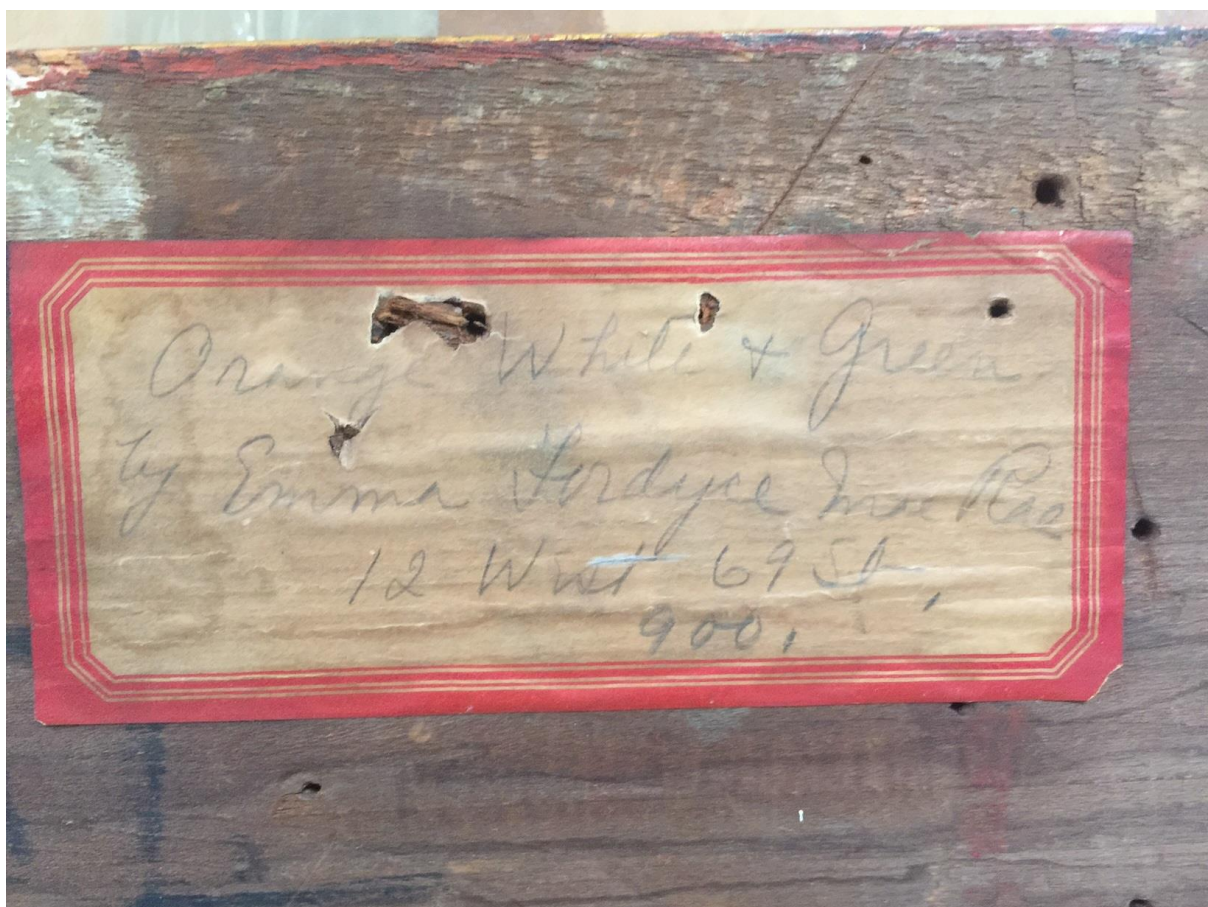 Orange White & Green
by Emma Fordyce Mac Rae
12 West 69 St,
900.